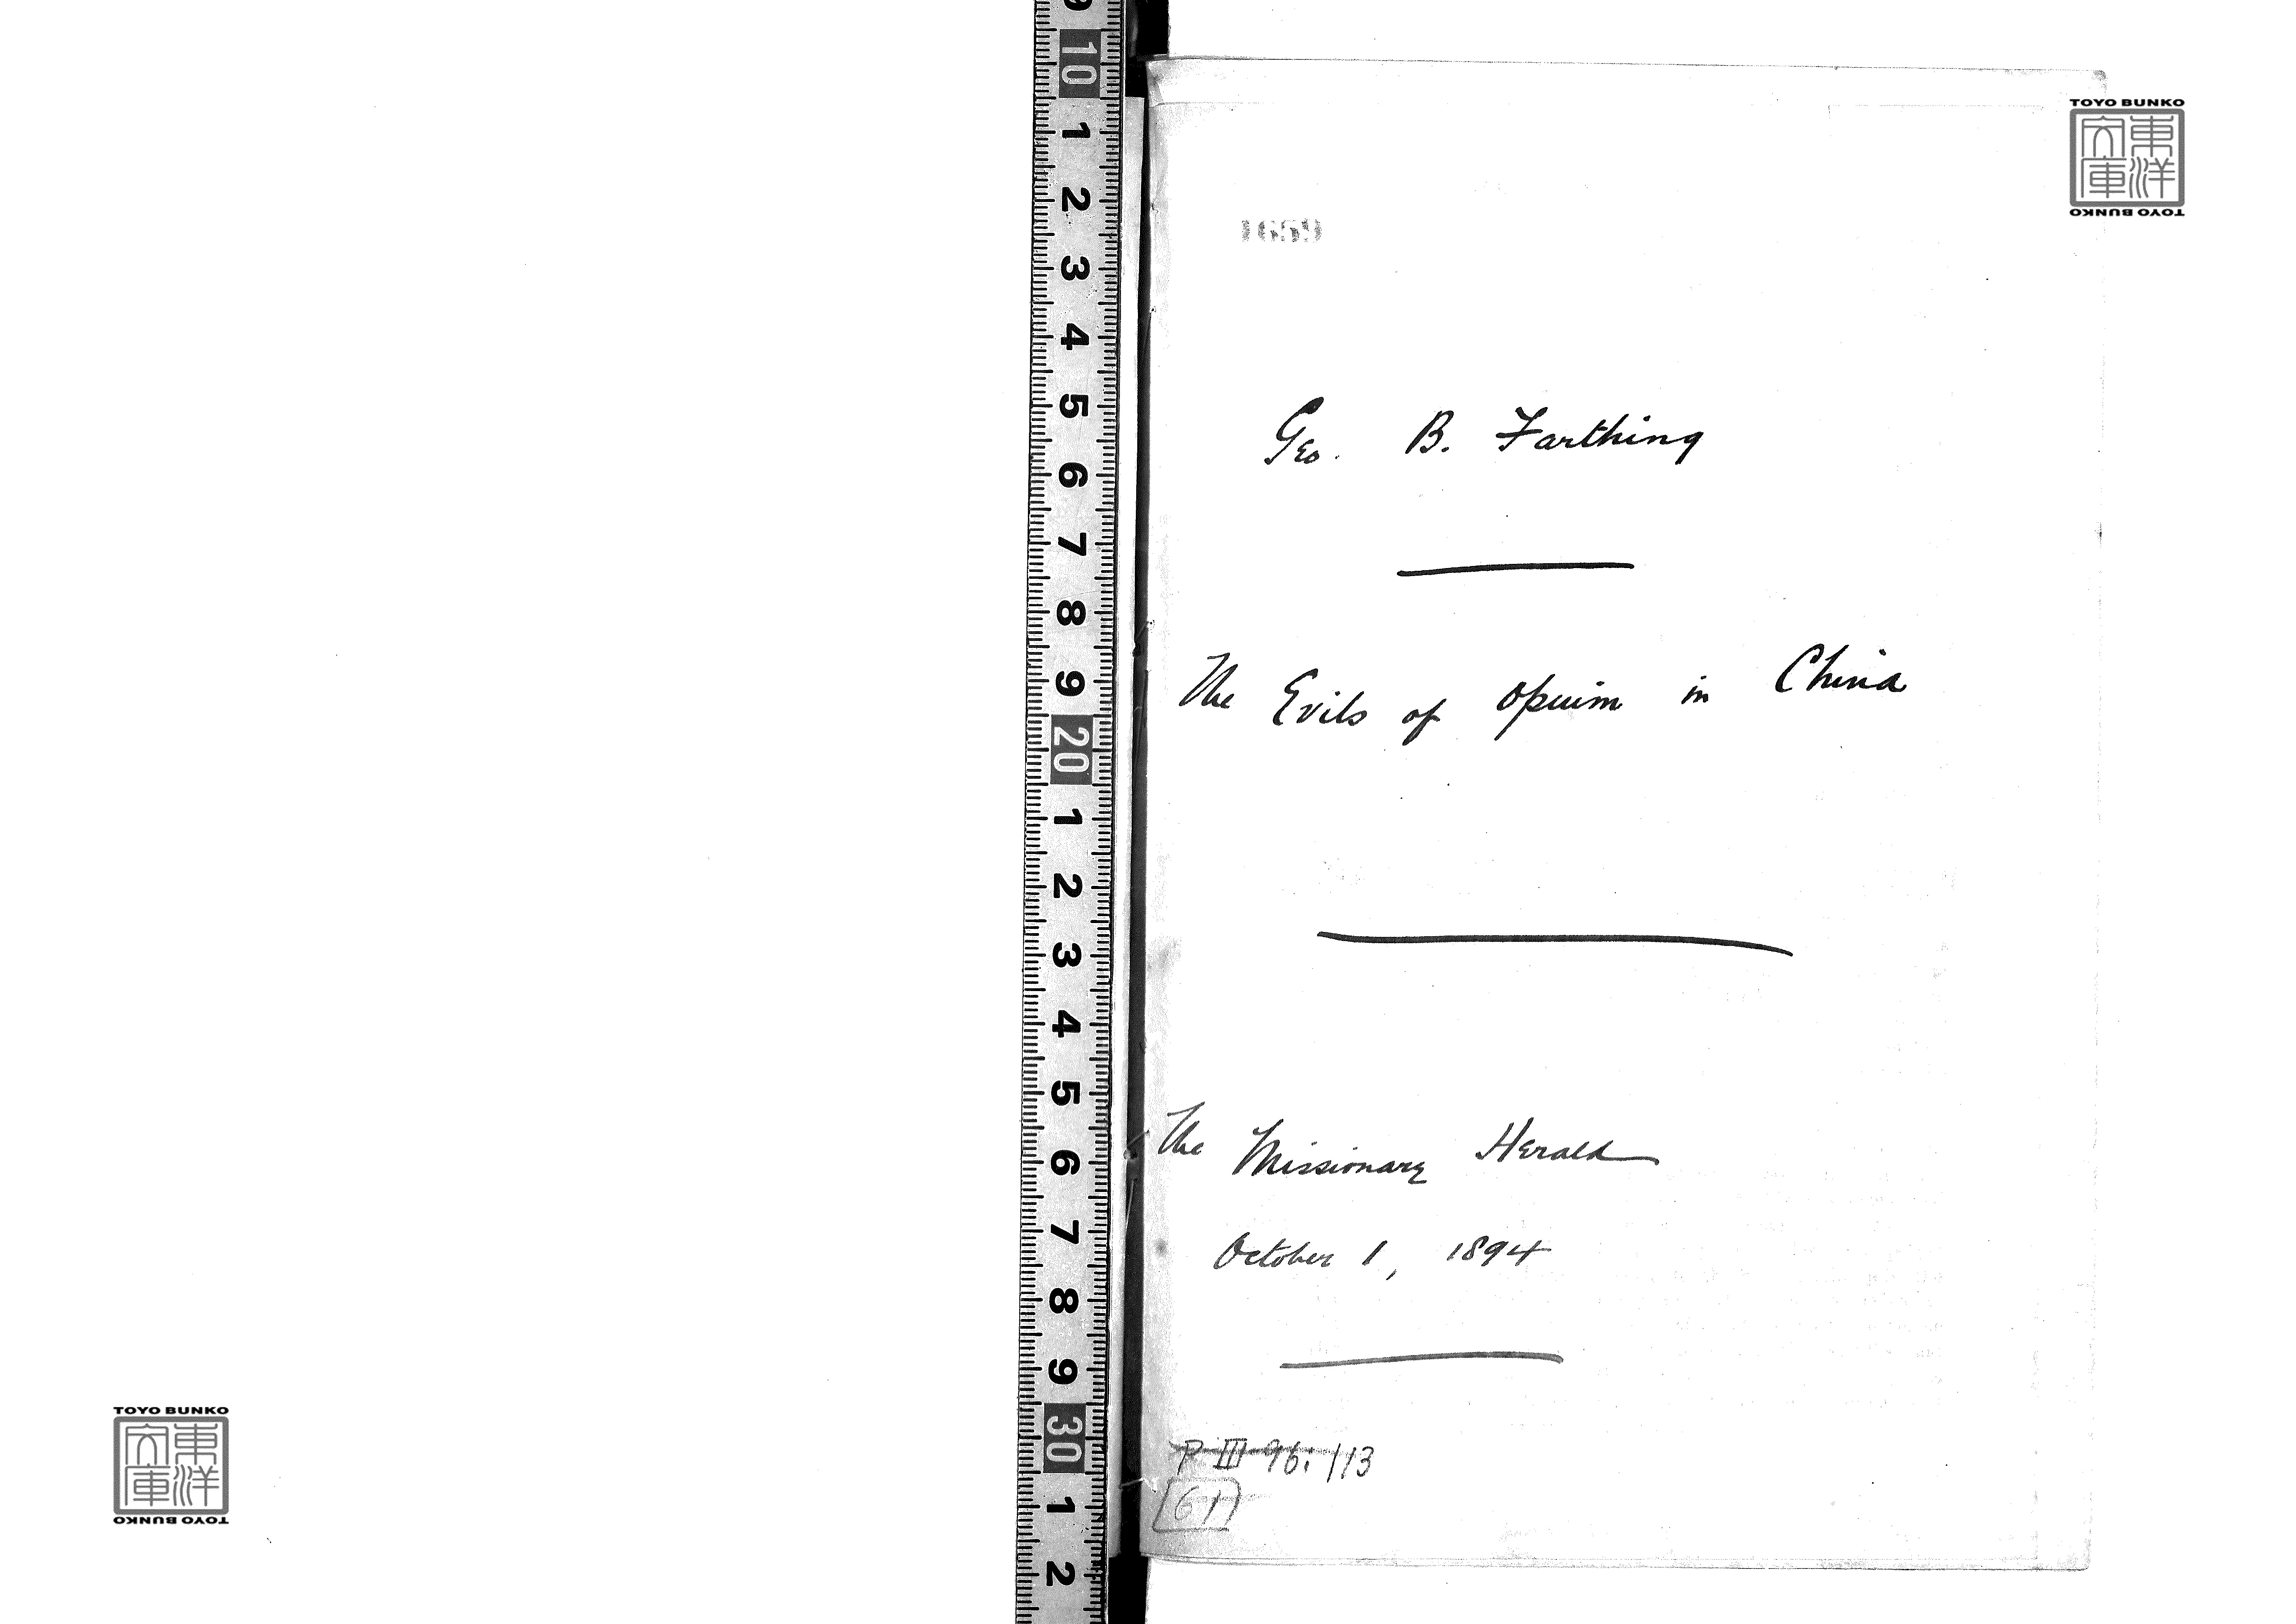 TOYO BUNKO
東洋文庫
TOYO BUNKO
1659
Geo. B. Farthing
The Evils of Opium in China
The Missionary Herald
October 1, 1894
P III 96: 113
61
TOYO BUNKO
東洋文庫
TOYO BUNKO
10
1
2
3
4
5
6
7
8
9
20
1
2
3
4
5
6
7
8
9
30
1
2